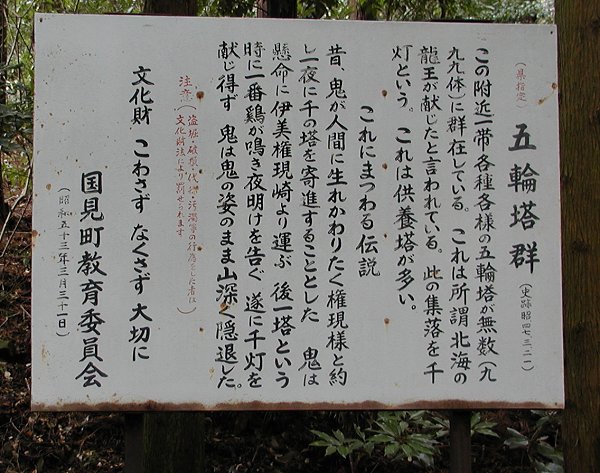 (県指定)
五輪塔群
(史跡 昭四七、三、二一)
この附近一帯各種各様の五輪塔が無数(九
九九体)に群在している。これは所謂北海の
龍王が献じたと言われている。此の集落を千
灯という。これは供養塔が多い。
これにまつわる伝説
昔、鬼が人間に生れかわりたく権現様と約
し一夜に千の塔を寄進することとした 鬼は
懸命に伊美権現崎より運ぶ 後一塔という
時に一番鶏が鳴き夜明けを告ぐ 遂に千灯を
献じ得ず 鬼は鬼の姿のまま山深く隠退した。
注意(盗掘・破損 汚濁等の行為をした者は
文化財法により罰せられます)
文化財 こわさず なくさず 大切に
国見町教育委員会
(昭和五十三年三月三十一日)